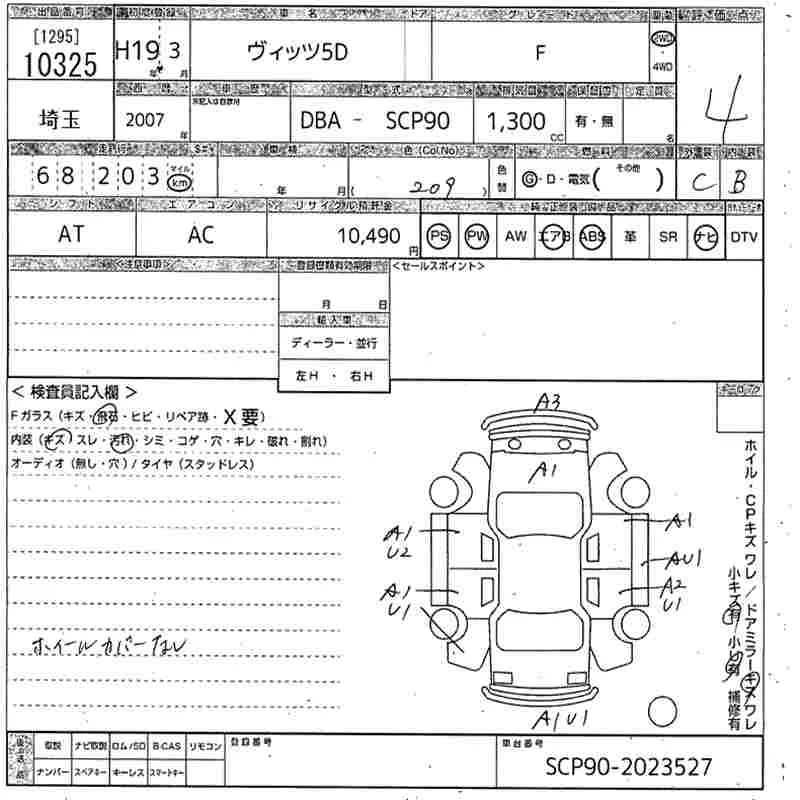 出品番号 初度登録 車名 ドア グレード 車歴 評価点
[1295]
10325
H19 3
年 月
ヴィッツ5D
F
2WD
・
4WD
4
西暦 車歴 型式 排気量 定員
未記入は自家用
埼玉
2007 年
DBA - SCP90
1,300 CC
有・無
名
走行 車検 色(Col.No) 燃料 外装 内装
68203
マイル
km
年 月
( 209 )
色替
G・D・電気( その他 )
C
B
シフト エアコン リサイクル預託金
AT
AC
10,490 円
PS PW AW エアB ABS 革 SR ナビ DTV
<注意事項>
登録書類有効期限
<セールスポイント>
月 日
輸入車
ディーラー・並行
左H ・ 右H
< 検査員記入欄 >
Fガラス(キズ・飛石・ヒビ・リペア跡・X要)
内装(キズ スレ・汚れ・シミ・コゲ・穴・キレ・破れ・割れ)
オーディオ(無し・穴)/タイヤ(スタッドレス)
A3
A1
A1
U2
A1
AU1
A1
U1
A2
U1
A1U1
ホイールカバーなし
ホイル・CPキズ ワレ/ドアミラーキズ ワレ
小キズ有 小凹有 補修有
取説 ナビ取説 ロム/SD B-CAS リモコン
ナンバー スペアキー キーレス スマートキー
登録番号
車台番号
SCP90-2023527